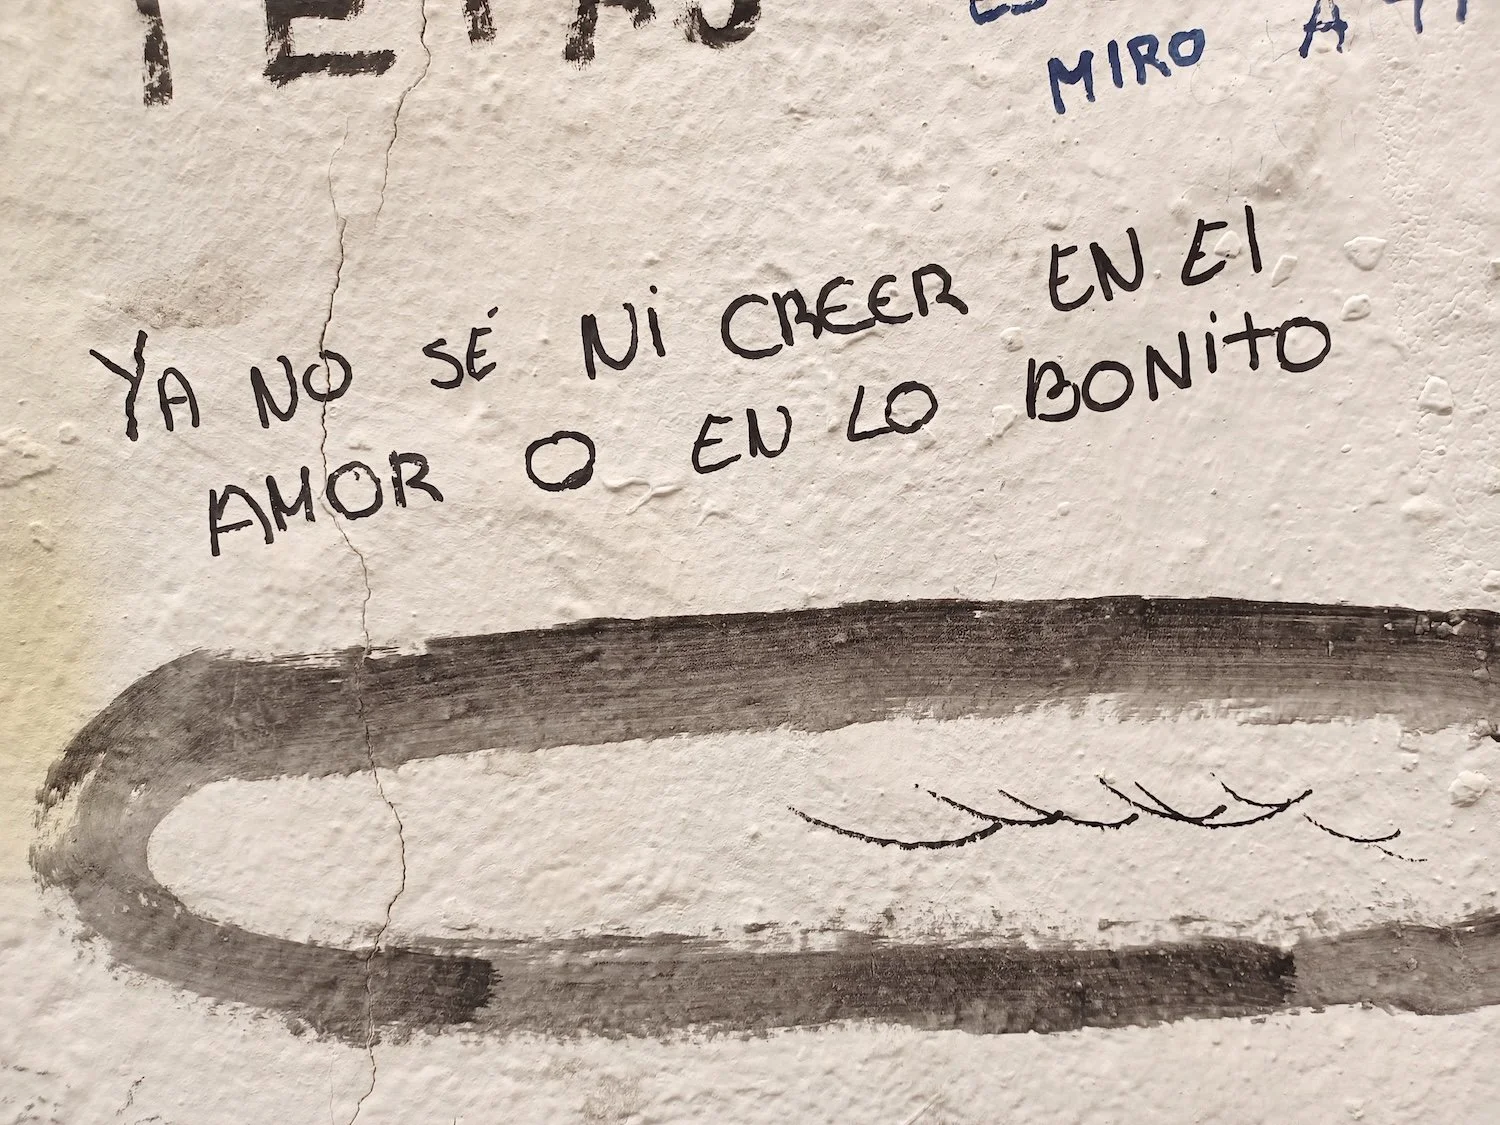 TETAS
MIRO A TI
YA NO SÉ NI CREER EN El
AMOR O EN LO BONITO